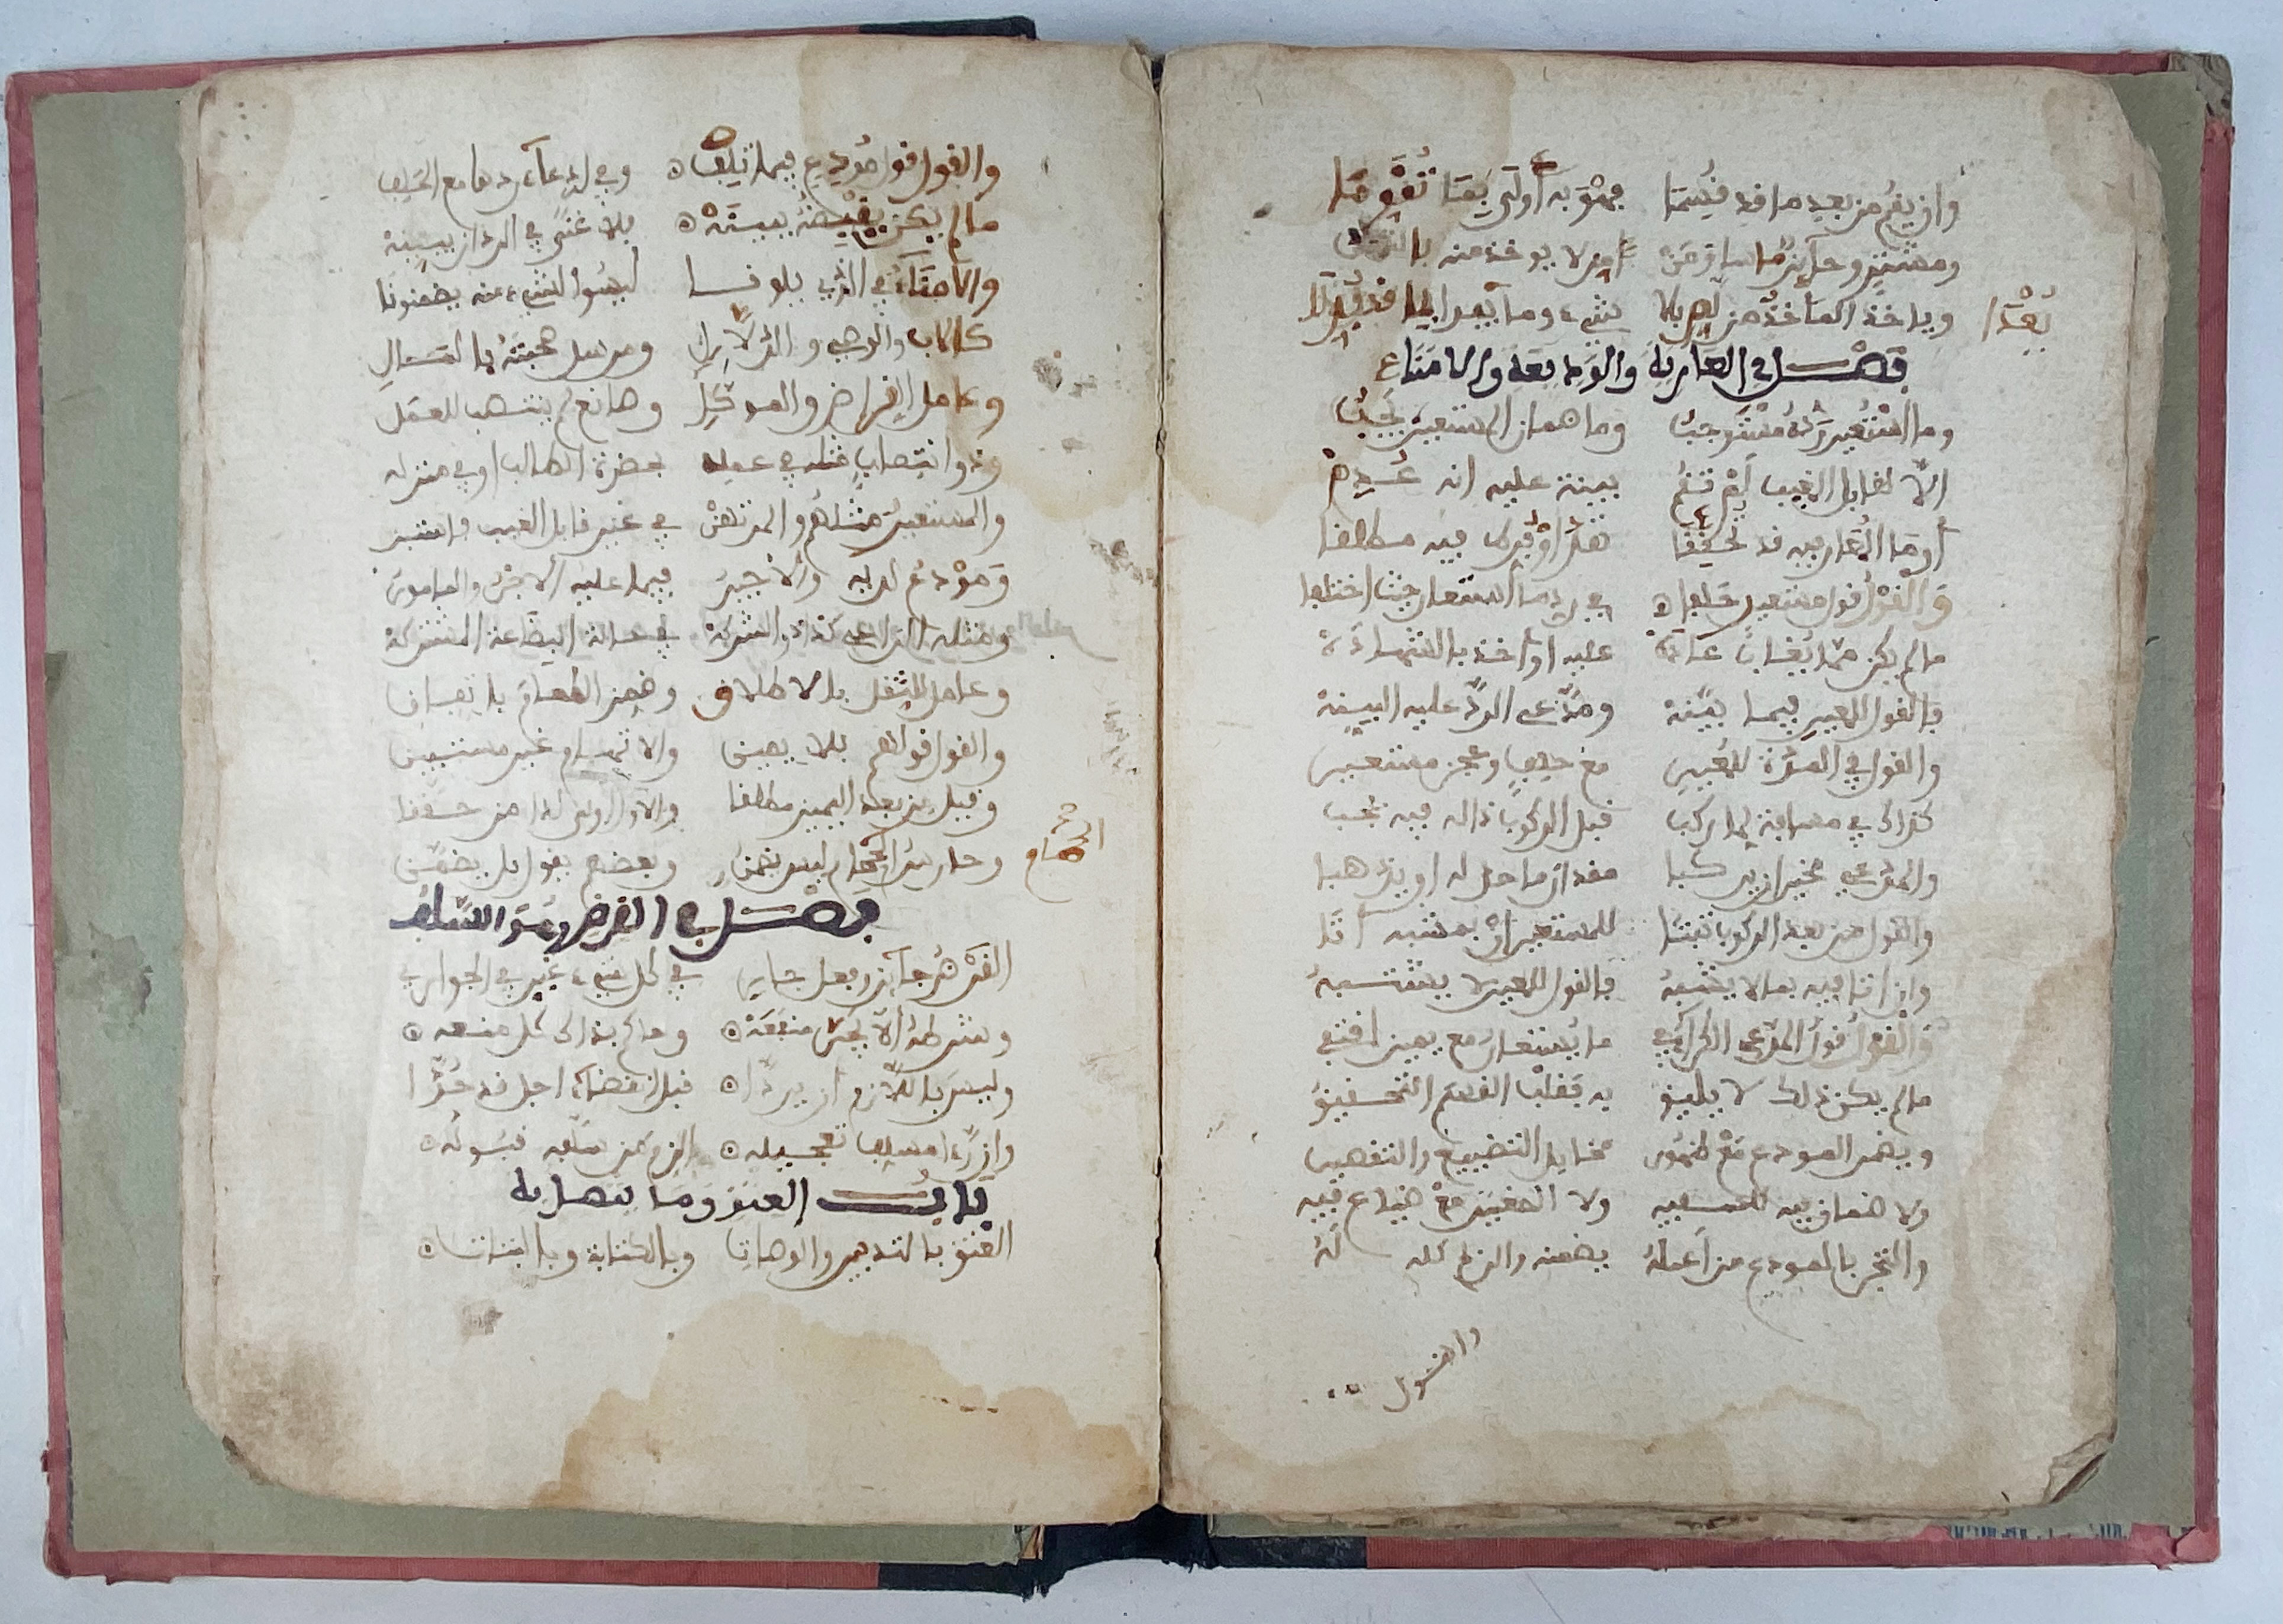 وان يقم من بعد ما قد قسما فهو به أولى بما تقوما
ومشتر وحائز ما ساق من أمن لا يوخذ منه بالثمن
وياخذ الماخوذ من لص بلا شيء وما يفدا بما قد بذلا
بعدا
فصل في العارية والوديعة والامناء
وما استعير رده مستوجب وما ضمان المستعير يجب
الا لقابل المغيب لم تقم بينة عليه انه عدم
أو ما المعار فيه قد تحققا تعد أو فرط فيه مطلقا
والقول قول مستعير حلفا في رد ما استعار حيث اختلفا
ما لم يكن مما يغاب عادة عليه او أخذ بالشهادة
فالقول للمعير فيما بينه ومدعي الرد عليه البينة
والقول في المدة للمعير مع حلف وعجز مستعير
كذاك في مسافة لما ركب قبل الركوب ذا له فيه يجب
والمدعي مخير ان يركبا مقدار ما حد له او يذهبا
والقول من بعد الركوب ثبتا للمستعير ان بمشبه أتا
وان اتا فيه بما لا يشبه فالقول للمعير لا يشتبه
والقول قول المدعي الكراء في ما يستعار مع يمين اقتفي
ما لم يكن ذلك لا يليق به فقلب القسم التحقيق
ويضمن المودع مع ظهور مخايل التضييع والتقصير
ولا ضمان فيه للسفيه ولا الصغير مع ضياع فيه
والتجر بالمودع من أعمله يضمنه والربح كله له
والقول
والقول قول مودع فيما تلف وفي ادعاء ردها مع الحلف
ما لم يكن يقبضه ببينه فلا غنى في الرد ان يبينه
والامناء في الذي يلونا ليسوا لشيء منه يضمنونا
كالاب والوصي والدلال ومرسل صحبته بالمال
وعامل القراض والموكل وصانع لم ينتصب للعمل
وذو انتصاب مثله في عمله بحضرة الطالب او في منزله
والمستعير مثلهم والمرتهن في غير قابل المغيب فاستبن
ومودع لديه والأجير فيما عليه الاجر والمامور
ومثله الراعي كذا ذو الشركة في حالة البضاعة المشتركة
وعامل الثقل بالاطلاق وضمن الطعام باتفاق
والقول قولهم بلا يمين والاتهام غير مستبين
وقيل من بعد اليمين مطلقا والاول الاولى لدا من حققا
وحارس الحمام ليس يضمن وبعضهم يقول بل يضمن
الحمام
فصل في القرض وهو السلف
القرض جائز وفعل جاري في كل شيء غير في الجواري
وشرطه ألا يجر منفعة وحاكم بذاك كل منعه
وليس باللازم ان يردا قبل انقضاء اجل قد حدا
وان رءا مسلف تعجيله الزم من سلفه قبوله
باب العتق وما يتصل به
العتق بالتدبير والوصاة وبالكتابة وبالبتات